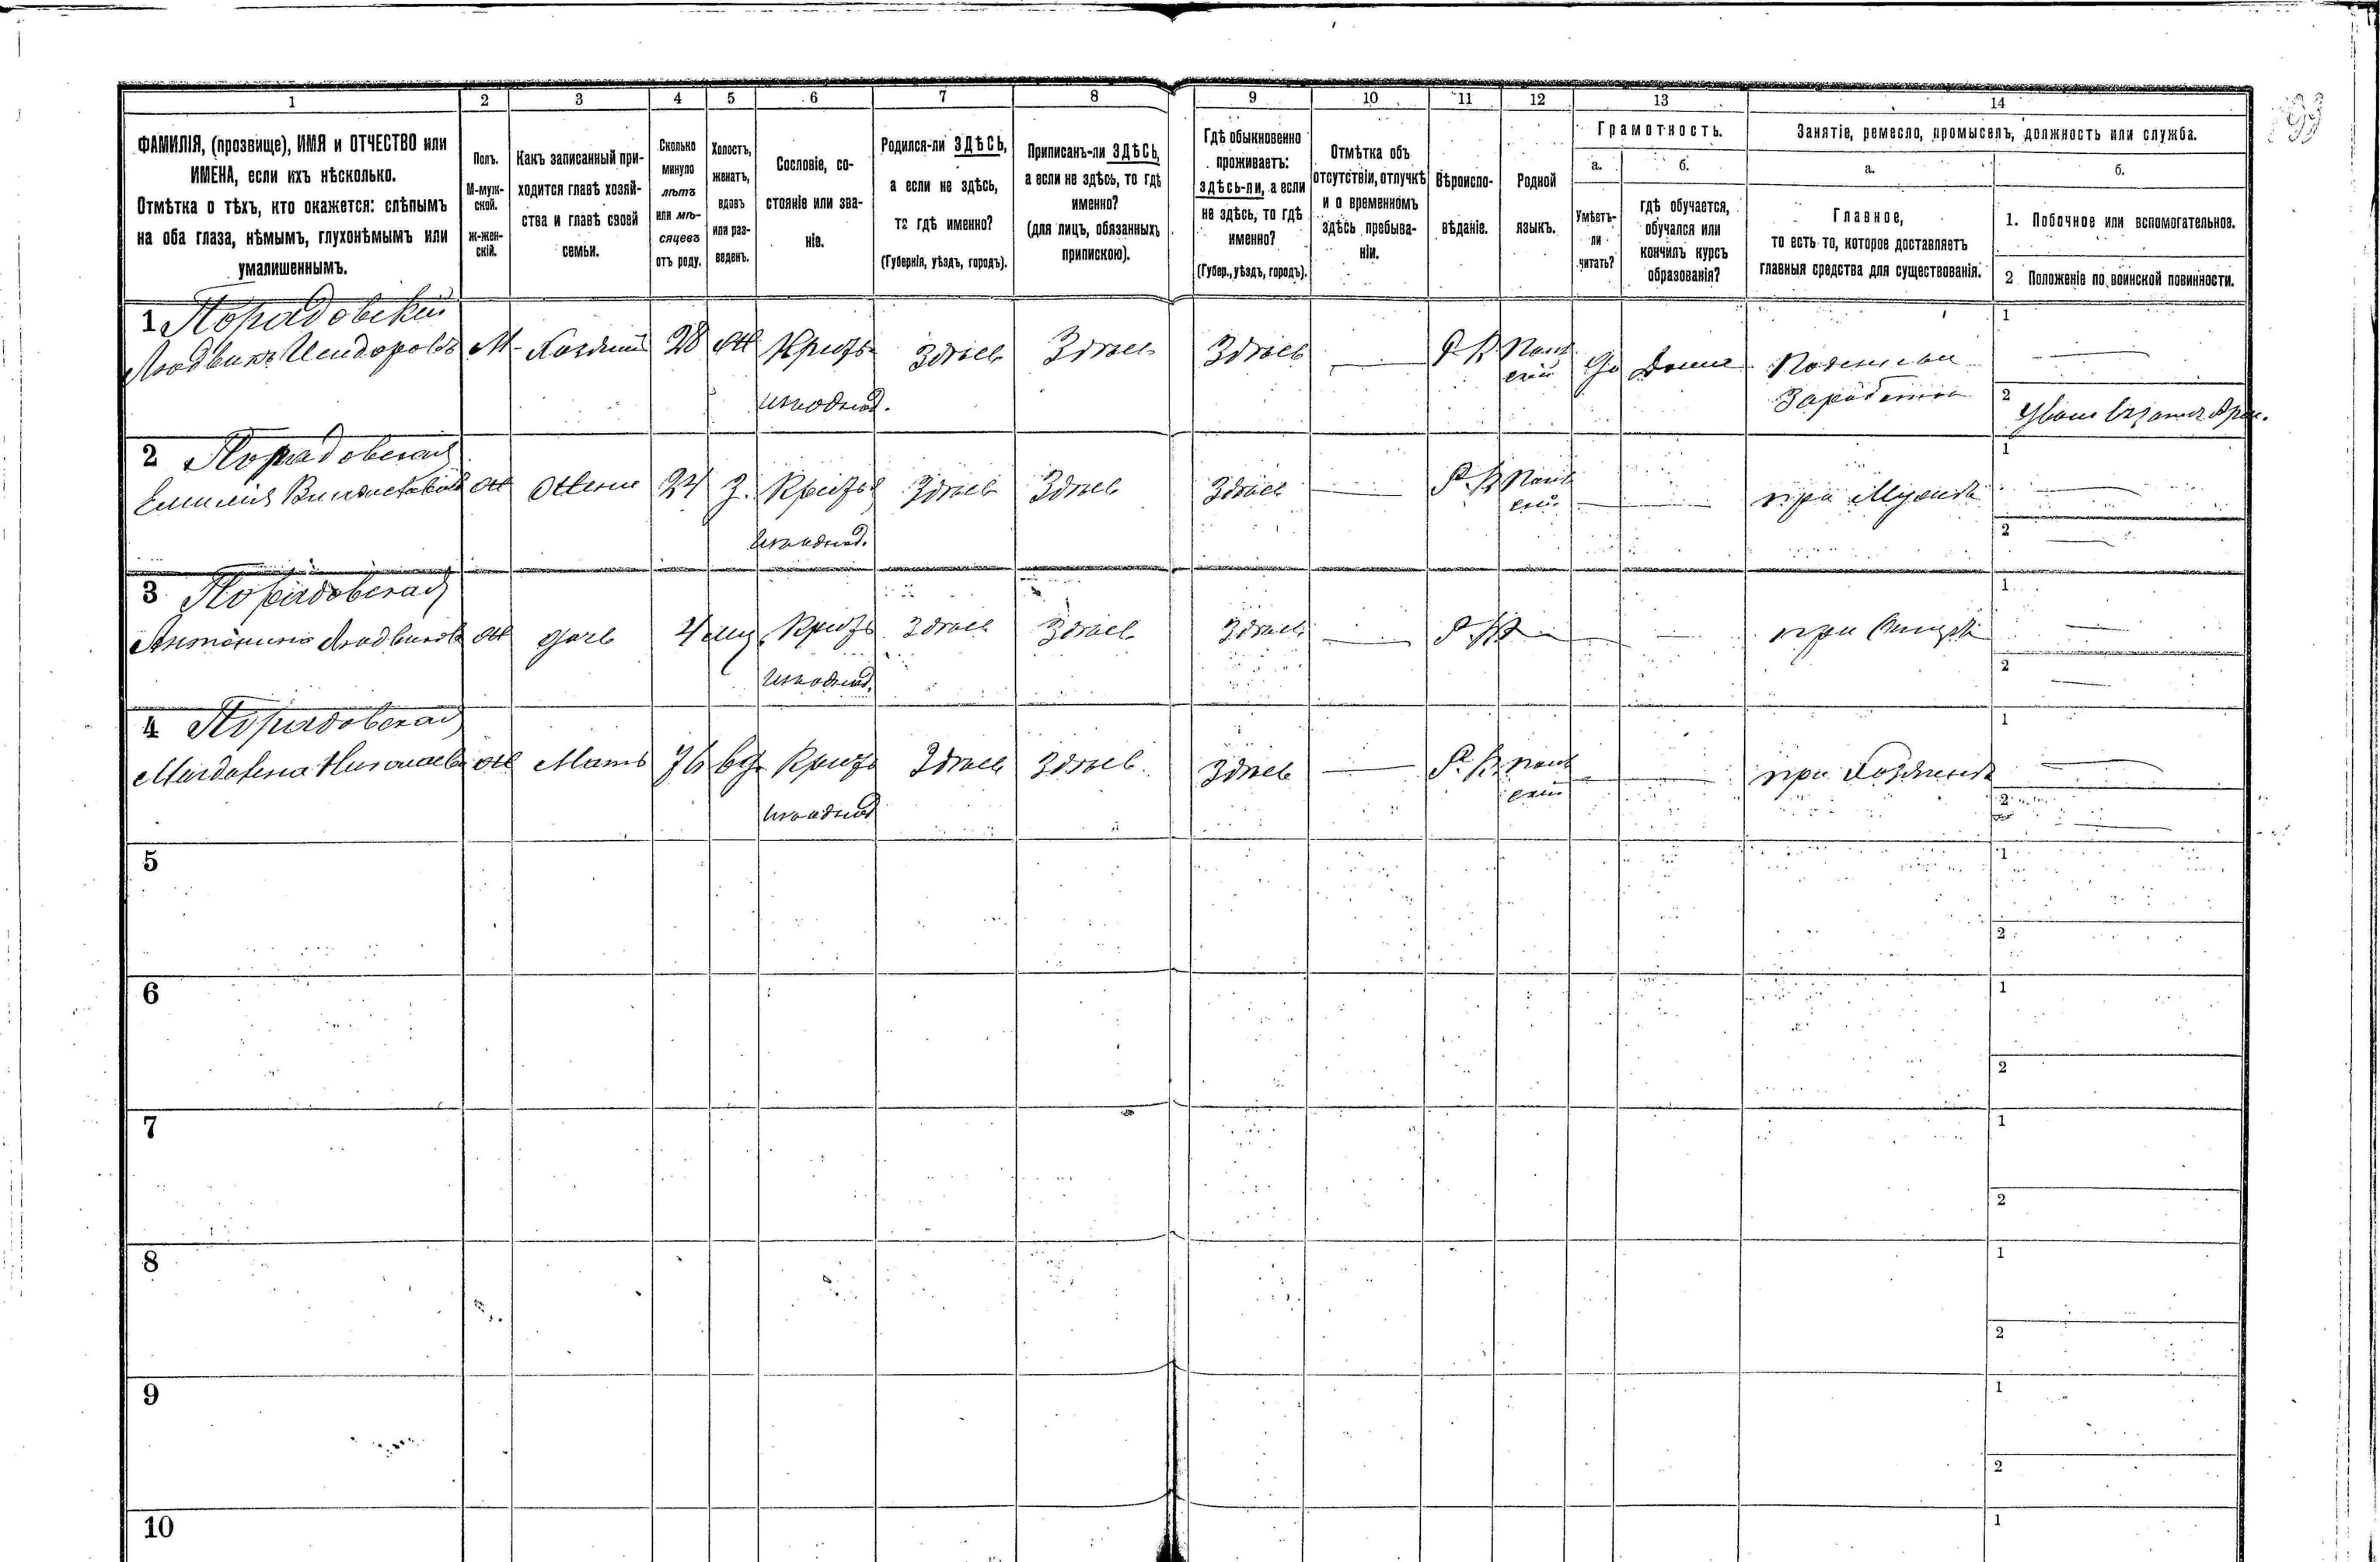 1 2 3 4 5 6 7 8 9 10 11 12 13 14
ФАМИЛІЯ, (прозвище), ИМЯ и ОТЧЕСТВО или
ИМЕНА, если ихъ нѣсколько.
Отмѣтка о тѣхъ, кто окажется: слѣпымъ
на оба глаза, нѣмымъ, глухонѣмымъ или
умалишеннымъ.
Полъ.
М-муж-
ской.
Ж-жен-
скій.
Какъ записанный при-
ходится главѣ хозяй-
ства и главѣ своей
семьи.
Сколько
минуло
лѣтъ
или мѣ-
сяцевъ
отъ роду.
Холостъ,
женатъ,
вдовъ
или раз-
веденъ.
Сословіе, со-
стояніе или зва-
ніе.
Родился-ли ЗДѢСЬ,
а если не здѣсь,
то гдѣ именно?
(Губернія, уѣздъ, городъ).
Приписанъ-ли ЗДѢСЬ,
а если не здѣсь, то гдѣ
именно?
(для лицъ, обязанныхъ
припискою).
Гдѣ обыкновенно
проживаетъ:
здѣсь-ли, а если
не здѣсь, то гдѣ
именно?
(Губер., уѣздъ, городъ).
Отмѣтка объ
отсутствіи, отлучкѣ
и о временномъ
здѣсь пребыва-
ніи.
Вѣроиспо-
вѣданіе.
Родной
языкъ.
Грамотность.
а.
Умѣетъ-
ли
читать?
б.
гдѣ обучается,
обучался или
кончилъ курсъ
образованія?
Занятіе, ремесло, промыселъ, должность или служба.
а.
Главное,
то есть то, которое доставляетъ
главныя средства для существованія.
б.
1. Побочное или вспомогательное.
2 Положеніе по воинской повинности.
1 Порадовский
Людвикъ Исидоровъ М Хозяинъ 28 Ж Кризъ Здѣсь Здѣсь Здѣсь Р К Поль да Дома
ский
исподнад.
1
2
2 Порадовская
Емилія Ж Жена 24 З. Кризъ Здѣсь Здѣсь Здѣсь Р. К Поль при Мужѣ
ский
исподнад.
1
2
3 Порадовская
Антонина Людвиков Ж дочь 4 мц Кризъ Здѣсь Здѣсь Здѣсь Р. К при
исподнад.
1
2
4 Порадовская
Магдалена Николаев Ж Мать 76 вд Кризъ Здѣсь Здѣсь Здѣсь Р. К. поль при Хозяинѣ
ский
исподнад
1
2
5
1
2
6
1
2
7
1
2
8
1
2
9
1
2
10
1